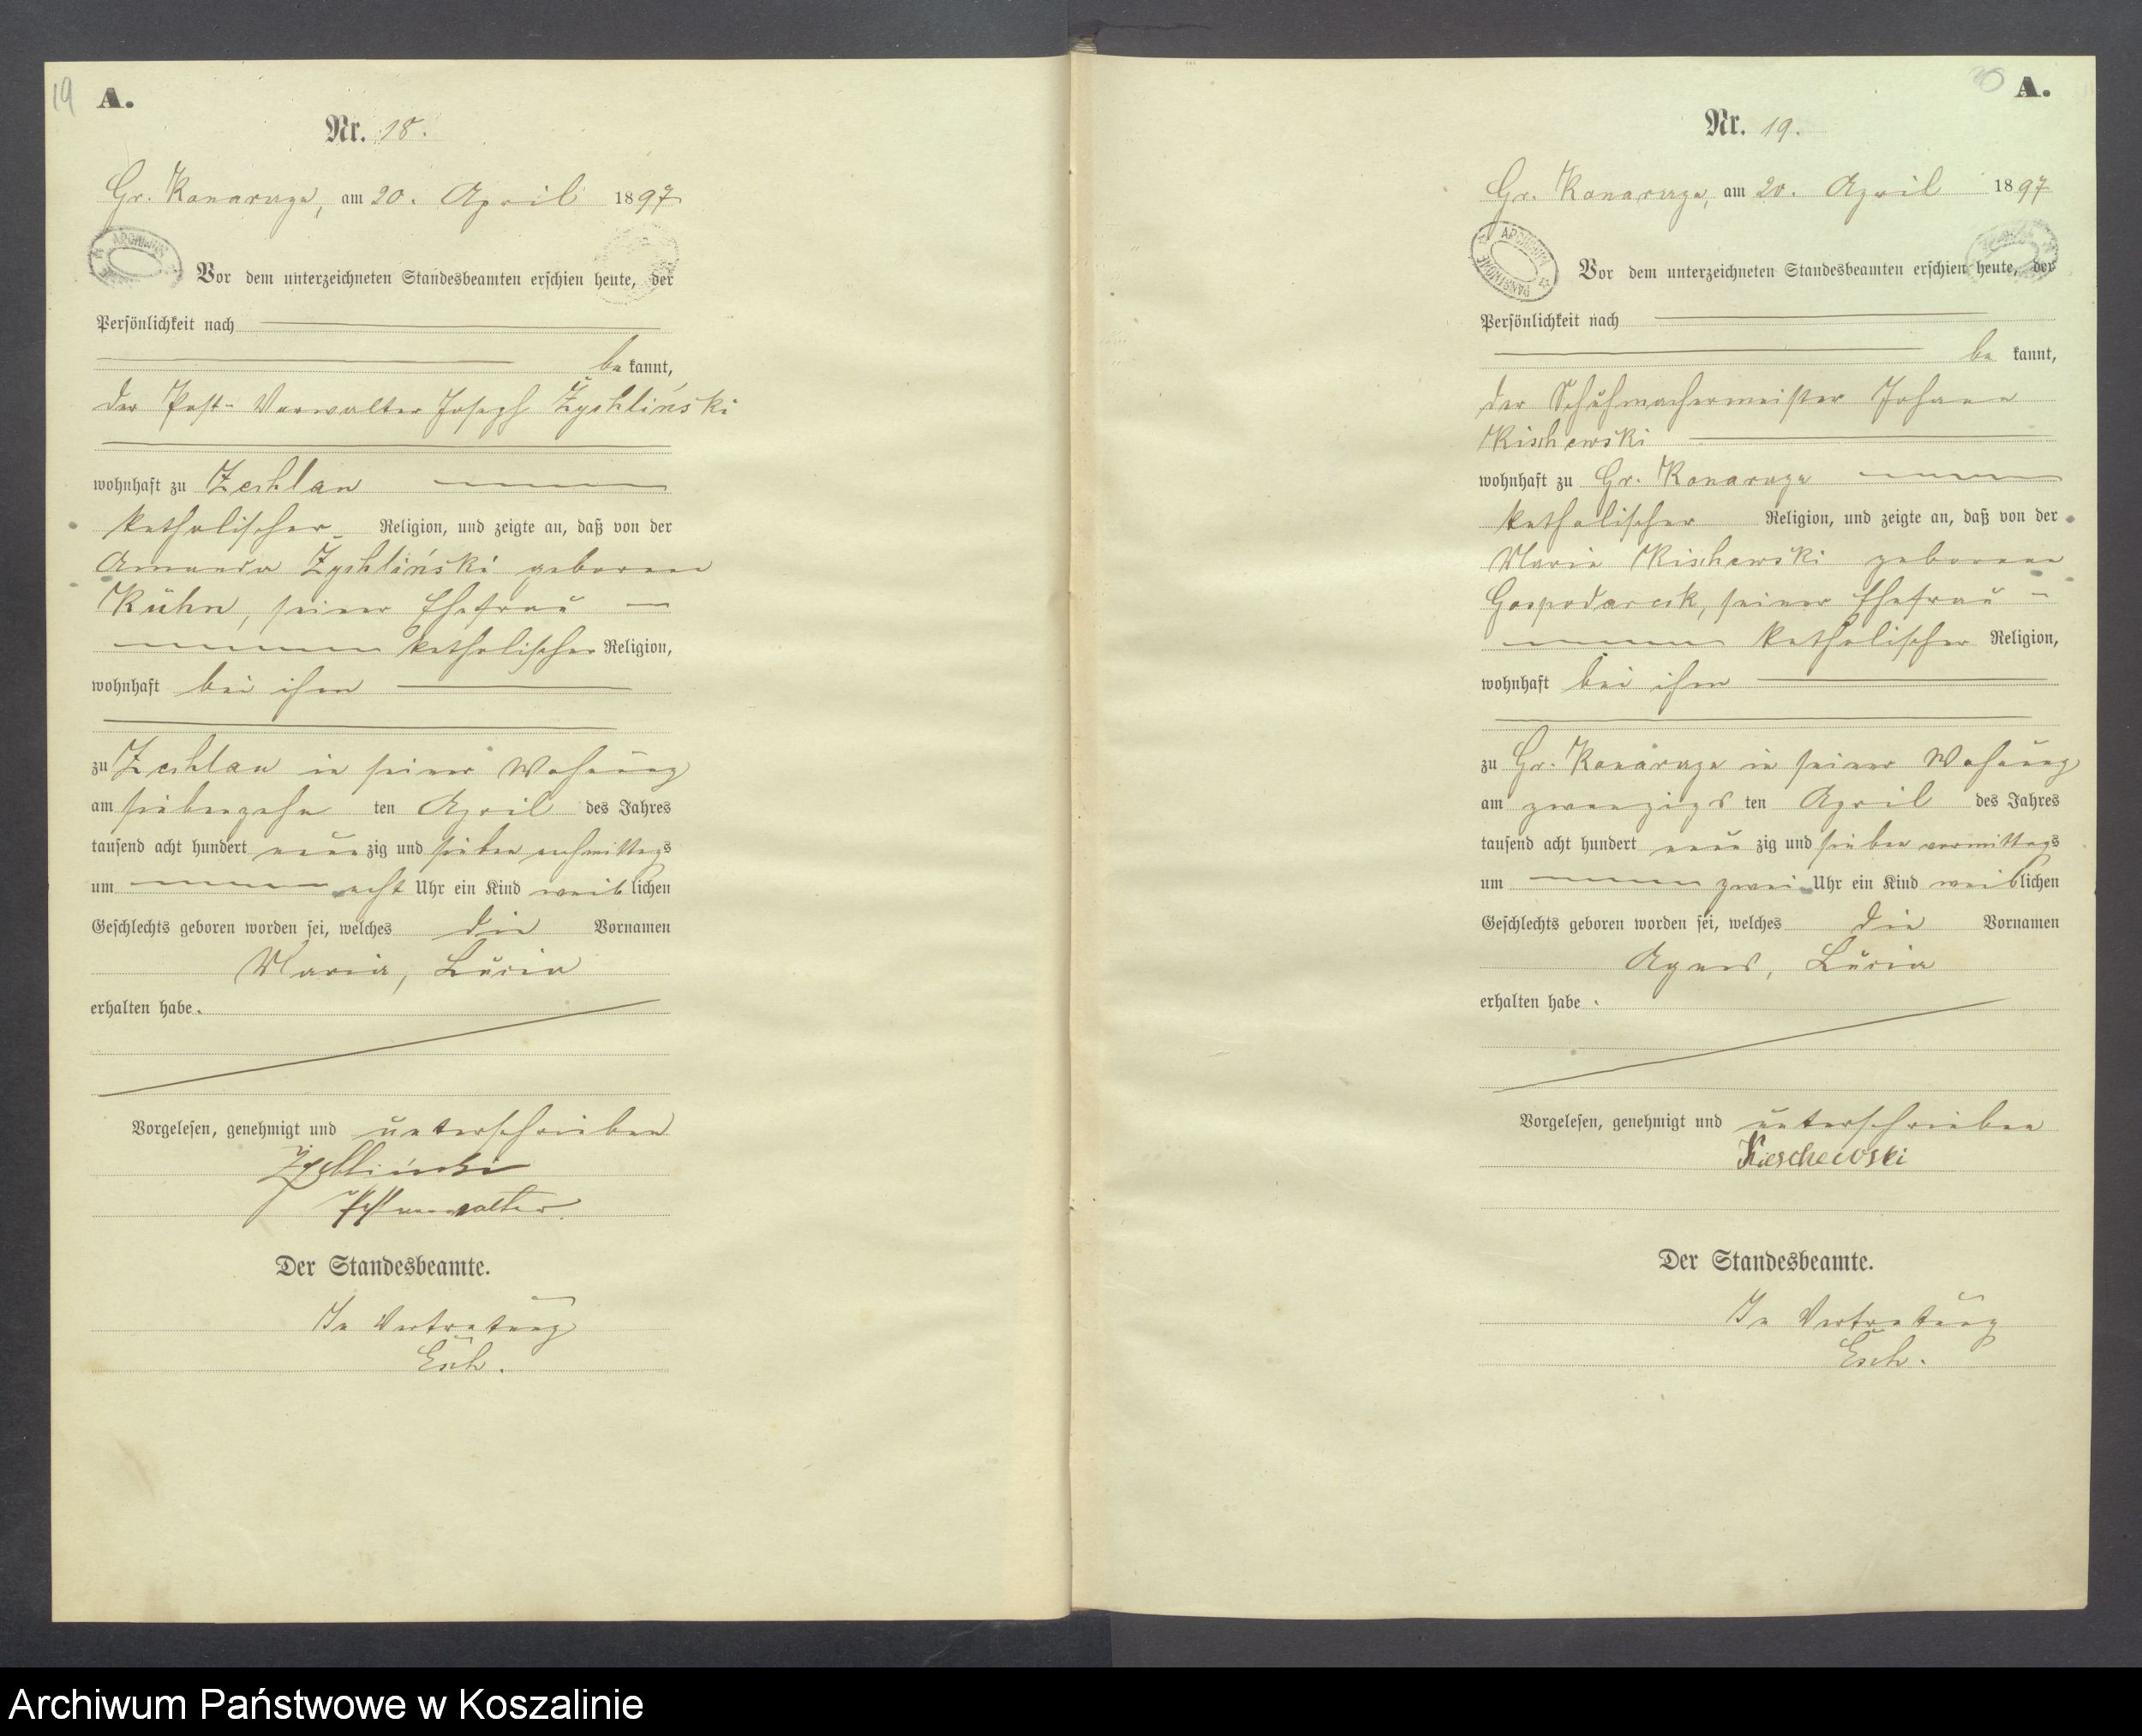 19
A.
Nr. 18.
Gr. Konarczyn, am 20. April 1897
Vor dem unterzeichneten Standesbeamten erschien heute, der
Persönlichkeit nach
be kannt,
der Post-Verwalter Joseph Żychliński
wohnhaft zu Zechlau
katholischer Religion, und zeigte an, daß von der
Amanda Żychliński geborene
Kühn, seiner Ehefrau
katholischer Religion,
wohnhaft bei ihm
zu Zechlau in seiner Wohnung
am siebenzehn ten April des Jahres
tausend acht hundert neun zig und sieben nachmittags
um acht Uhr ein Kind weiblichen
Geschlechts geboren worden sei, welches die Vornamen
Maria, Lucia
erhalten habe.
Vorgelesen, genehmigt und unterschrieben
Żychliński
Postverwalter
Der Standesbeamte.
In Vertretung
Esch.
A.
Nr. 19.
Gr. Konarczyn, am 20. April 1897
ARCHIWUM PAŃSTWOWE
Vor dem unterzeichneten Standesbeamten erschien heute, der
Persönlichkeit nach
be kannt,
der Schuhmachermeister Johann
Kischewski
wohnhaft zu Gr. Konarczyn
katholischer Religion, und zeigte an, daß von der
Maria Kischewski geborene
Gospodareck, seiner Ehefrau
katholischer Religion,
wohnhaft bei ihm
zu Gr. Konarczyn in seiner Wohnung
am zwanzigs ten April des Jahres
tausend acht hundert neun zig und sieben vormittags
um zwei Uhr ein Kind weiblichen
Geschlechts geboren worden sei, welches die Vornamen
Agnes, Lucia
erhalten habe.
Vorgelesen, genehmigt und unterschrieben
Kieschewski
Der Standesbeamte.
In Vertretung
Esch.
Archiwum Państwowe w Koszalinie